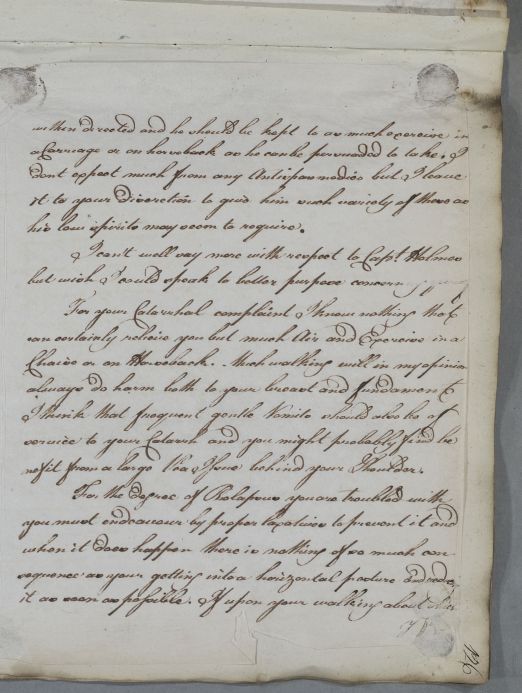 within directed and he should be kept to as much exercise in
a Carriage or on horseback as he can be persuaded to take. I
dont expect much from any Antispasmodics but I leave
it to your discretion to give him such variety of these as
his low spirits may seem to require.
I can't well say more with respect to Capt. Holmes
but wish I could speak to better purpose concerning
For your Catarrhal complaint I know nothing that
can certainly relieve you but much Air and Exercise in a
Chaise or on Horseback. Much walking will in my opinion
always do harm both to your breast and fundament
I think that frequent gentle Vomits should also be of
service to your Catarrh and you might probably find be
nefit from a large Pea Issue behind your Shoulder.
For the degree of Prolapsus you are troubled with
you must endeavour by proper laxatives to prevent it and
when it does happen there is nothing of so much con
sequence as your getting into a horizontal posture and
it as soon as possible. If upon your walking about